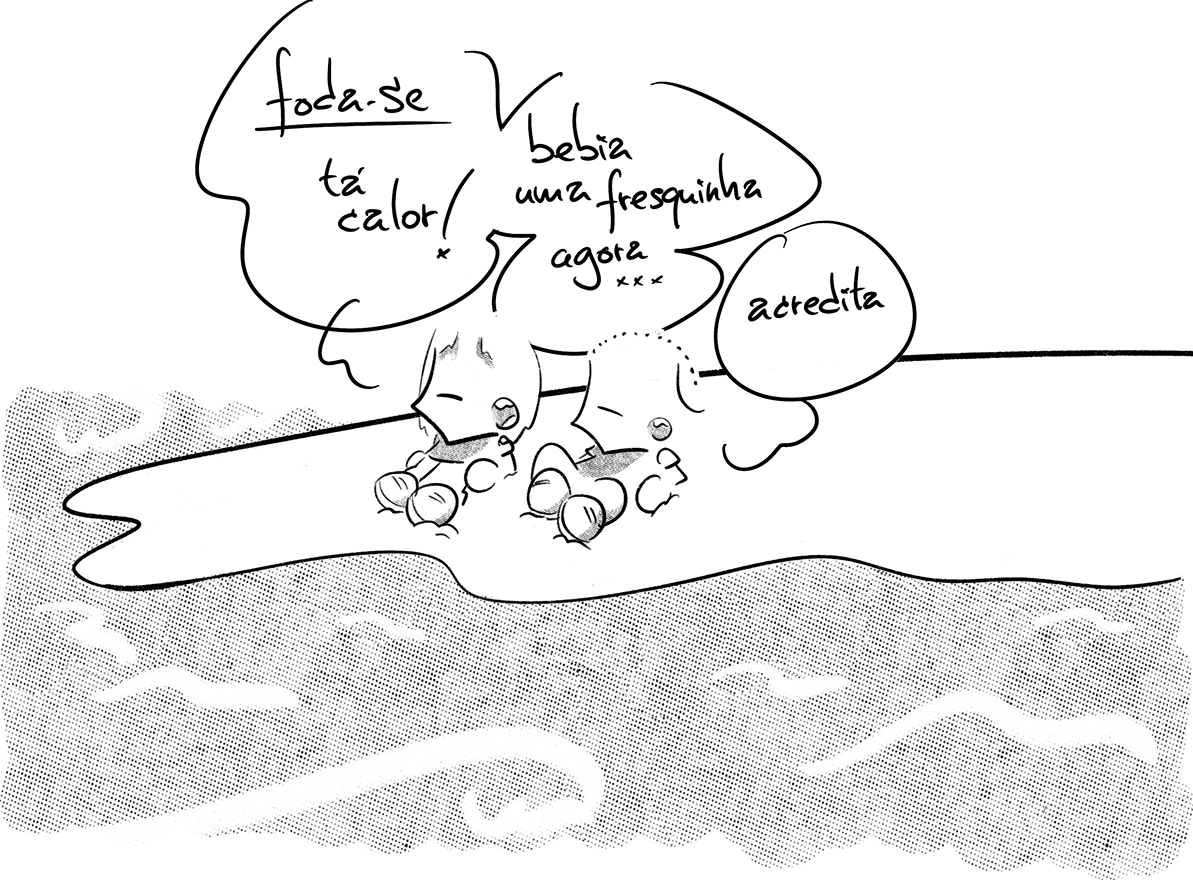 foda-se
tá
calor!
bebia
uma fresquinha
agora
...
acredita